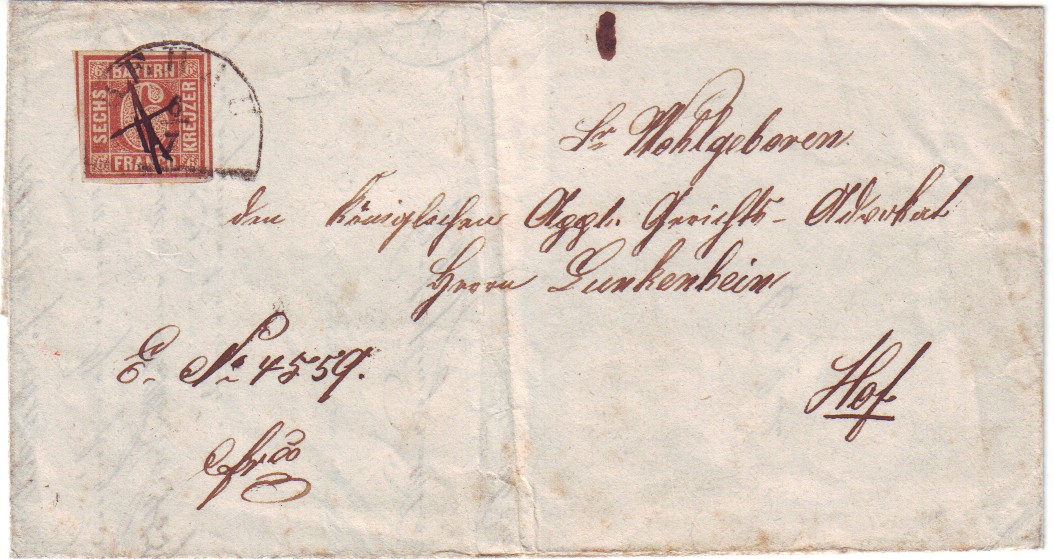 BAYERN
SECHS
KREUZER
FRANCO
6
REHAU
Sr Wohlgeboren
den Königlichen Appl. Gerichts-Advokat
Herrn Lunkenbein
Hof.
E. No 4559.
frco